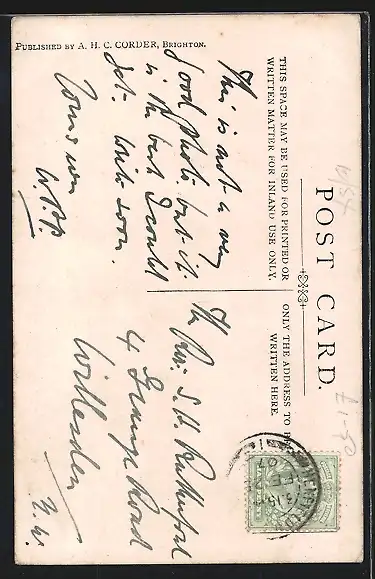 PUBLISHED BY A. H. C. CORDER, BRIGHTON.
POST CARD.
THIS SPACE MAY BE USED FOR PRINTED OR
WRITTEN MATTER FOR INLAND USE ONLY.
ONLY THE ADDRESS TO BE
WRITTEN HERE.
This is not a very
good photo but it
is the best I could
get. Write soon.
Yours ever
The Rev: S. V. Rutherford
4 Grange Road
Willesden
N.W.
£1-50